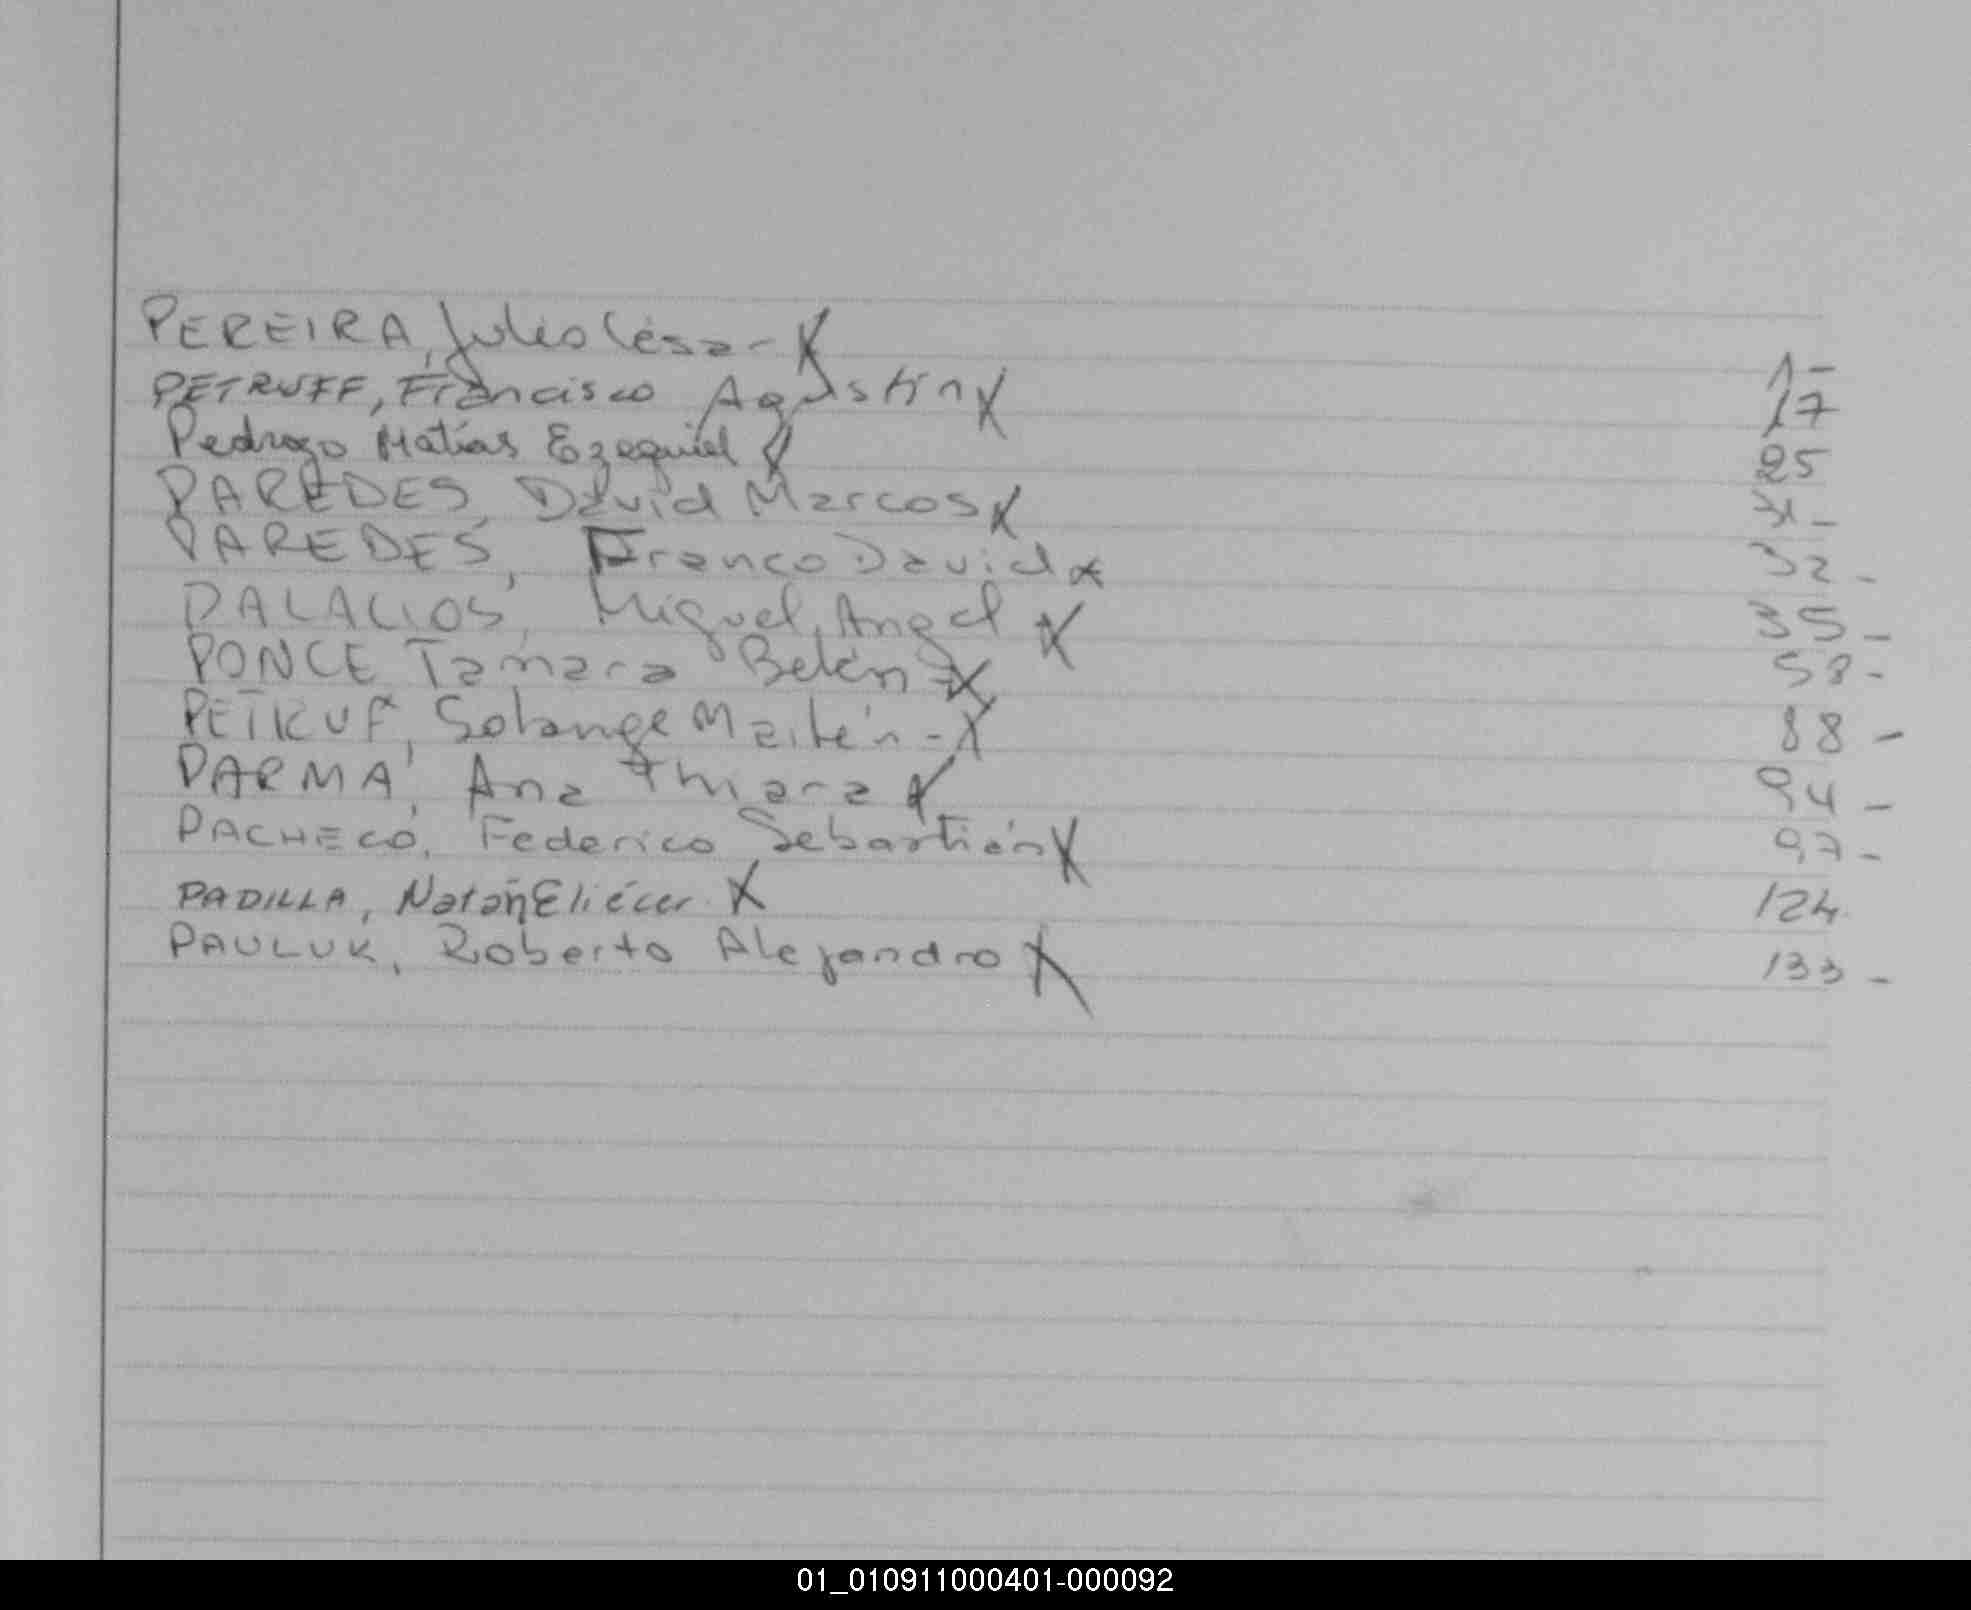 PEREIRA, Julio César - X 1 -
PETRUFF, Francisco Agustin X 17
Pedrozo Matías Ezequiel X 25
PAREDES, David Marcos X 31 -
PAREDES, Franco David x 32 -
PALACIOS, Miguel Angel X 35 -
PONCE Tamara Belén X 58 -
PETRUF, Solange Maitén - X 88 -
PARMA, Ana Thiara X 94 -
PACHECO, Federico Sebastián X 97 -
PADILLA, Natán Eliécer X 124
PAULUK, Roberto Alejandro X 133 -
01_010911000401-000092